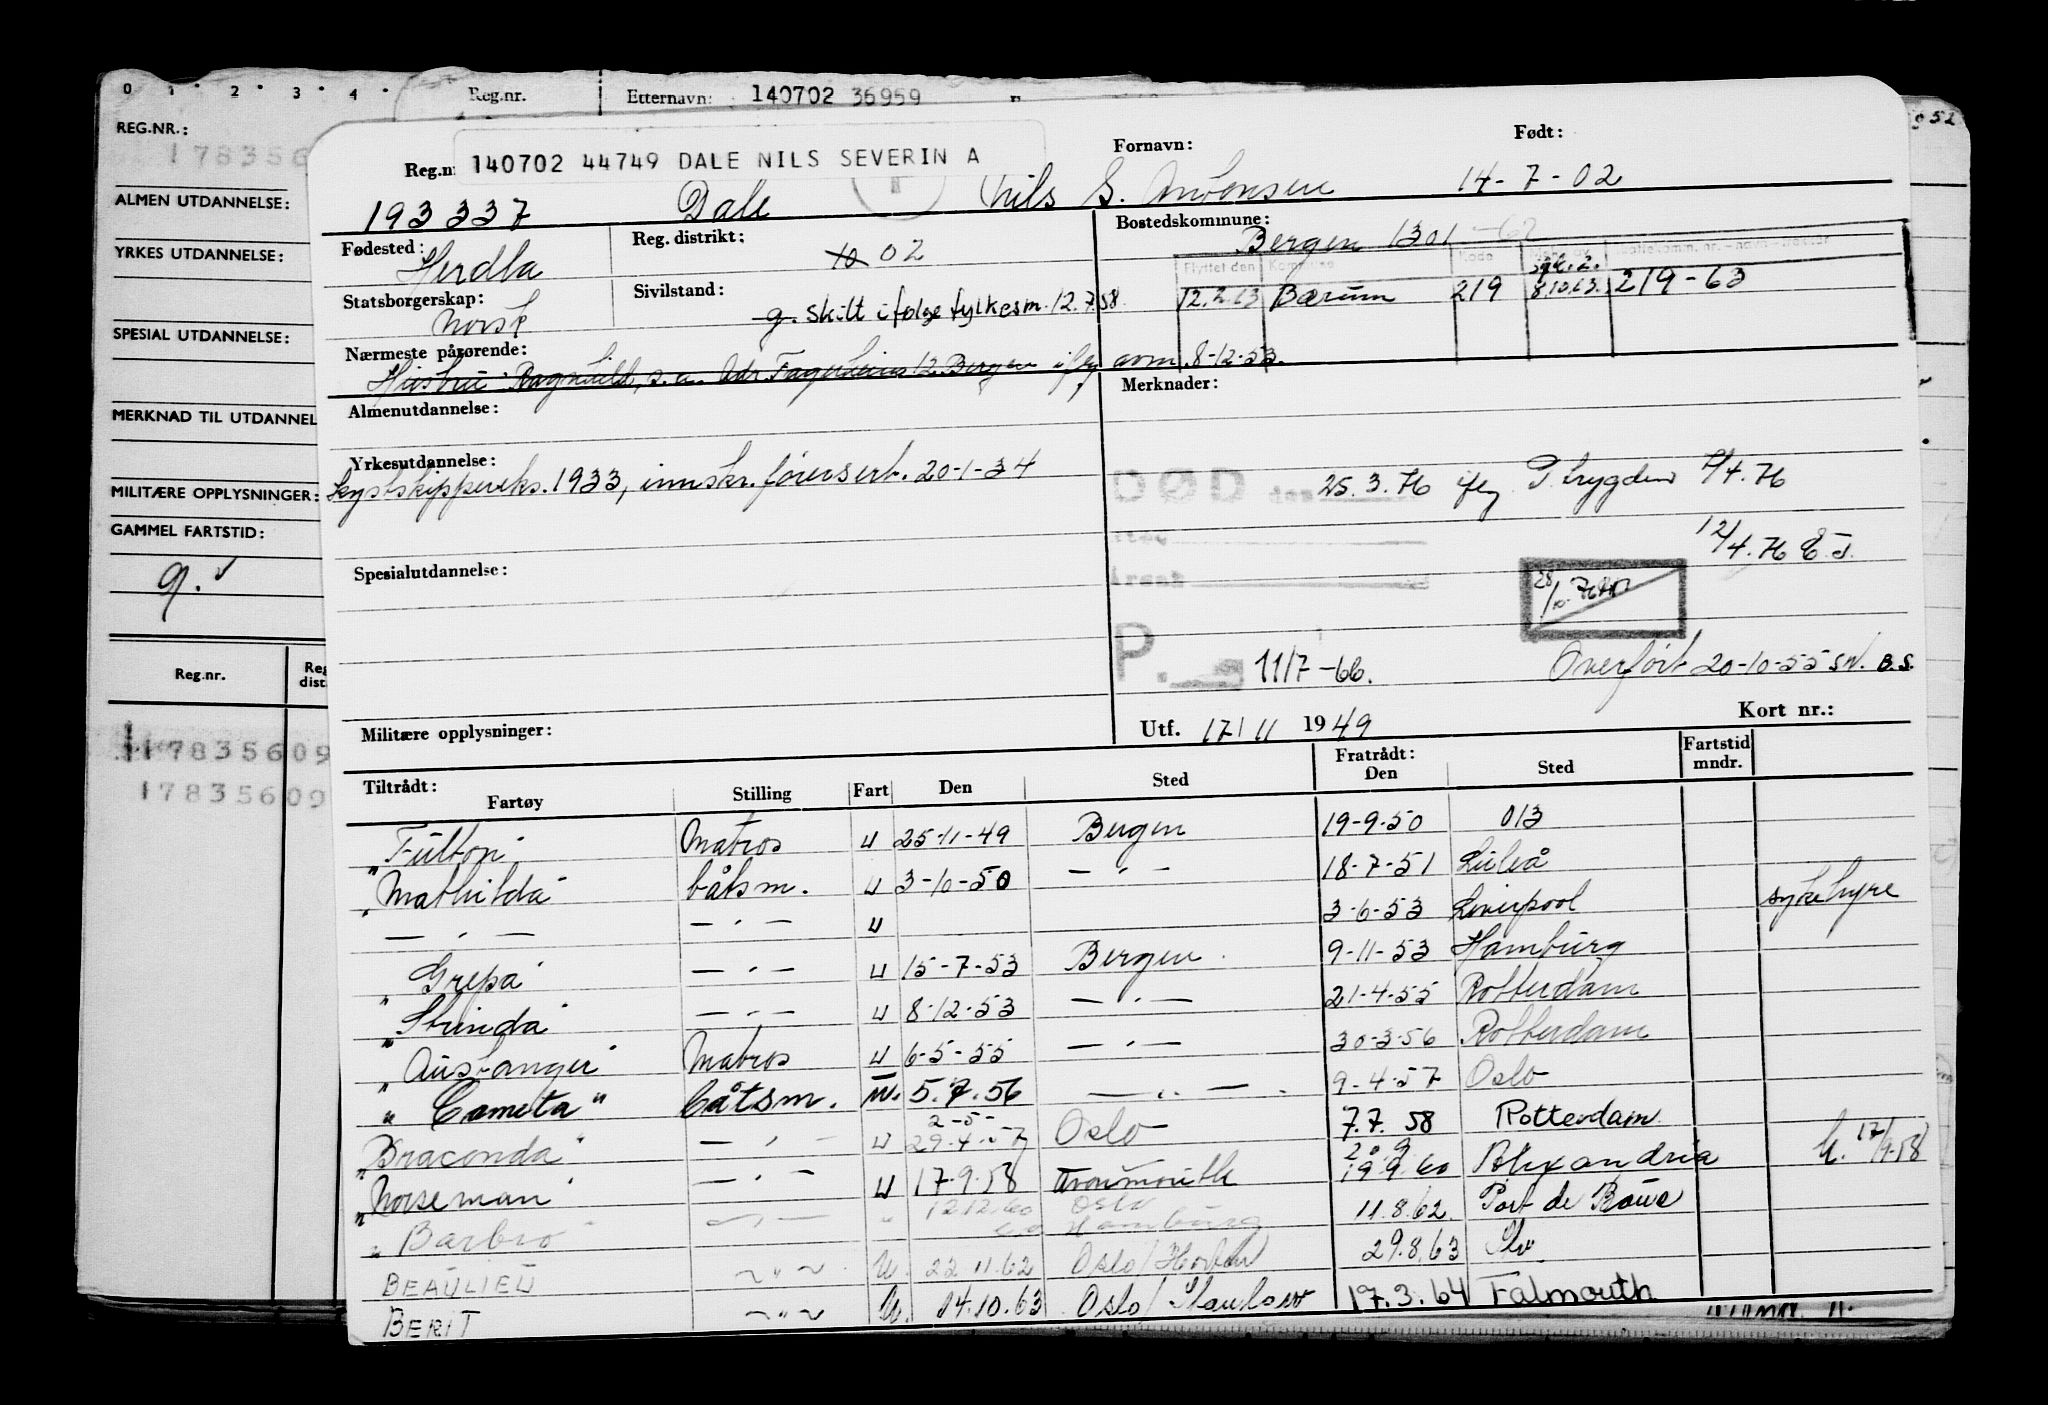 0 1 2 3 4
Reg.nr. Etternavn: 140702 36959
REG.NR.:
1783560
ALMEN UTDANNELSE:
YRKES UTDANNELSE:
SPESIAL UTDANNELSE:
MERKNAD TIL UTDANNEL
MILITÆRE OPPLYSNINGER:
GAMMEL FARTSTID:
g.
Reg.nr. Reg. dist.
117835609
17835609
52
Reg.nr 140702 44749 DALE NILS SEVERIN A Fornavn: Født:
193337 Dale Nils S. 14-7-02
Fødested: Herdla Reg. distrikt: 10 02 Bostedskommune: Bergen 1301 -62
Flyttet den Kommune Kode
Statsborgerskap: Norsk Sivilstand: g. skilt ifølge fylkesm. 12.7.58. 12.2.63 Bærum 219 8.10.63. 219-63
Nærmeste pårørende: Hustru Ragnhild, s.a. Adr. 12 Bergen iflg mm. 8-12-53.
Almenutdannelse: Merknader:
Yrkesutdannelse: Kystskippereks. 1933, innskr. førersert. 20-1-34
DØD den 25.3.76 iflg P.trygden 7/4.76
12/4.76 E.J.
Spesialutdannelse:
28/10-76
P. 11/7-66. Overført 20-10-55 SW. B.S.
Militære opplysninger: Utf. 17/11 1949 Kort nr.:
Tiltrådt: Fartøy Stilling Fart Den Sted Fratrådt: Den Sted Fartstid mndr.
"Fulton" Matros u 25-11-49 Bergen 19-9-50 013
"Mathilda" båtsm. u 3-10-50 — " — 18-7-51 Luleå
— " — — " — u 3-6-53 Liverpool sykehyre
"Grepa" — " — u 15-7-53 Bergen. 9-11-53 Hamburg
"Strinda" — " — u 8-12-53 — " — 21-4-55 Rotterdam
"Austanger" Matros u 6-5-55 — " — 30-3-56 Rotterdam
"Cometa" båtsm. u. 5.7.56 — " — 9-4-57 Oslo
"Braconda" — " — u 2-5- 29-4-57 Oslo 7.7.58 Rotterdam
"Norseman" — " — u 17-9-58 20.9 19.9.60 Alexandria 17/9-58
"Barbro" — " — " 12.12.60 Oslo Hamburg 11.8.62. Port de Bouc
BEAULIEU — " — U. 22.11.62 Oslo/Horten 29.8.63
BERIT — " — U. 14.10.63 Oslo/Stanlow 17.3.64 Falmouth